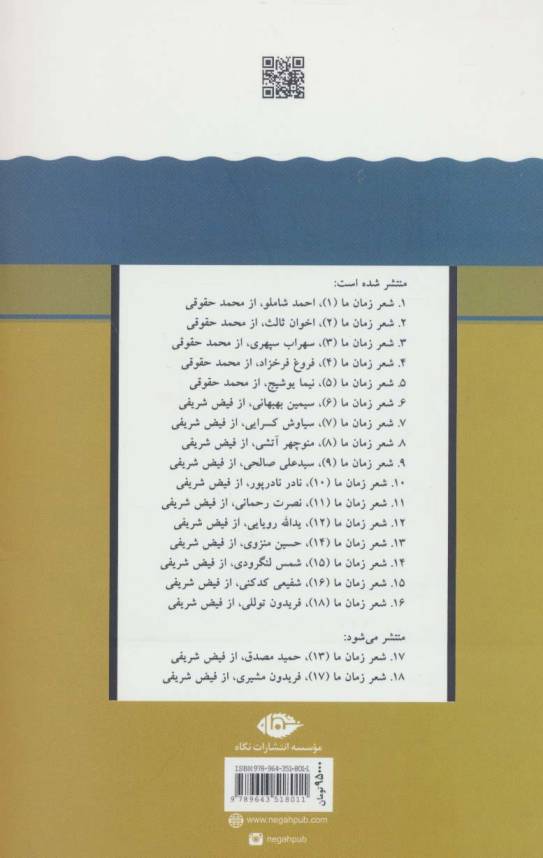 منتشر شده است:
۱. شعر زمان ما (۱)، احمد شاملو، از محمد حقوقی
۲. شعر زمان ما (۲)، اخوان ثالث، از محمد حقوقی
۳. شعر زمان ما (۳)، سهراب سپهری، از محمد حقوقی
۴. شعر زمان ما (۴)، فروغ فرخزاد، از محمد حقوقی
۵. شعر زمان ما (۵)، نیما یوشیج، از محمد حقوقی
۶. شعر زمان ما (۶)، سیمین بهبهانی، از فیض شریفی
۷. شعر زمان ما (۷)، سیاوش کسرایی، از فیض شریفی
۸. شعر زمان ما (۸)، منوچهر آتشی، از فیض شریفی
۹. شعر زمان ما (۹)، سیدعلی صالحی، از فیض شریفی
۱۰. شعر زمان ما (۱۰)، نادر نادرپور، از فیض شریفی
۱۱. شعر زمان ما (۱۱)، نصرت رحمانی، از فیض شریفی
۱۲. شعر زمان ما (۱۲)، یدالله رویایی، از فیض شریفی
۱۳. شعر زمان ما (۱۴)، حسین منزوی، از فیض شریفی
۱۴. شعر زمان ما (۱۵)، شمس لنگرودی، از فیض شریفی
۱۵. شعر زمان ما (۱۶)، شفیعی کدکنی، از فیض شریفی
۱۶. شعر زمان ما (۱۸)، فریدون توللی، از فیض شریفی
منتشر می‌شود:
۱۷. شعر زمان ما (۱۳)، حمید مصدق، از فیض شریفی
۱۸. شعر زمان ما (۱۷)، فریدون مشیری، از فیض شریفی
مؤسسه انتشارات نگاه
ISBN:978-964-351-801-1
9 789643 518011
۹۵۰۰۰ تومان
www.negahpub.com
negahpub